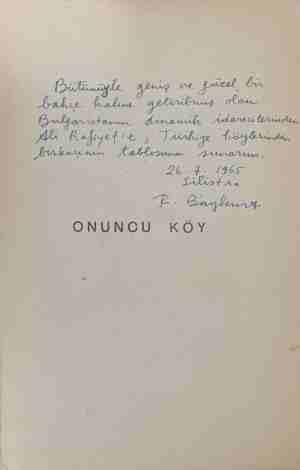 Bütünüyle geniş ve güzel bir
bahçe haline getirilmiş olan
Bulgaristanın dinamik idarecilerinden
Ali Rafiyef'e, Türkiye köylerinden
birkaçının tablosunu sunarım.
26. 7. 1965
Silistre
F. Baykurt
ONUNCU KÖY